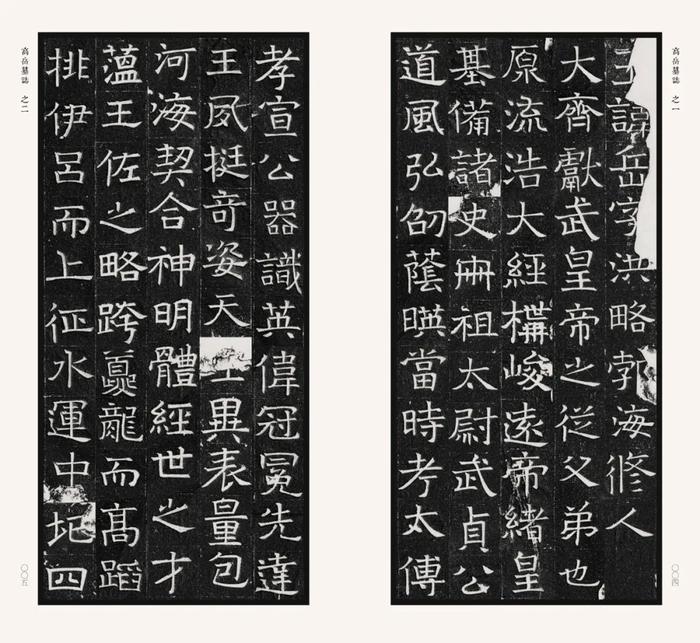 高岳墓誌 之一
王諱岳字洪略勃海脩人
大齊獻武皇帝之從父弟也
原流浩大經構峻遠帝緒皇
基備諸史冊祖太尉武貞公
道風弘劭蔭暎當時考太傅
〇〇四
高岳墓誌 之二
孝宣公器識英偉冠冕先達
王夙挺奇姿天異表量包
河海契合神明體經世之才
蘊王佐之略跨夔龍而高蹈
排伊呂而上征水運中圮四
〇〇五